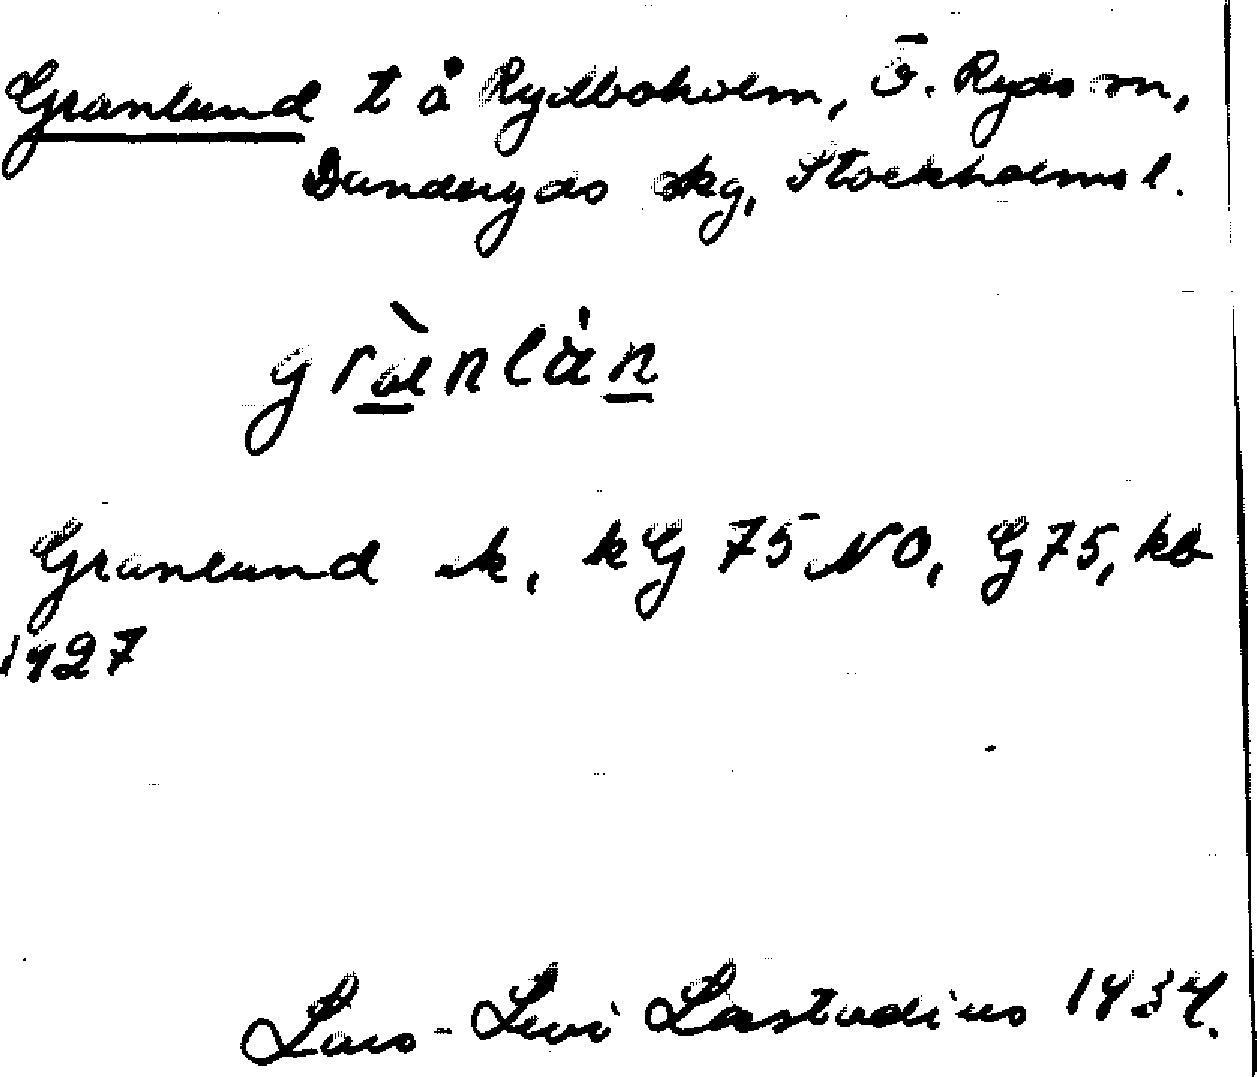 Granlund t å Rydboholm, Ö. Ryds sn,
Danderyds skg, Stockholms l.
grànlán
Granlund k, kG 75 NO, G75, kb
1927
Lars-Levi Læstadius 1934.